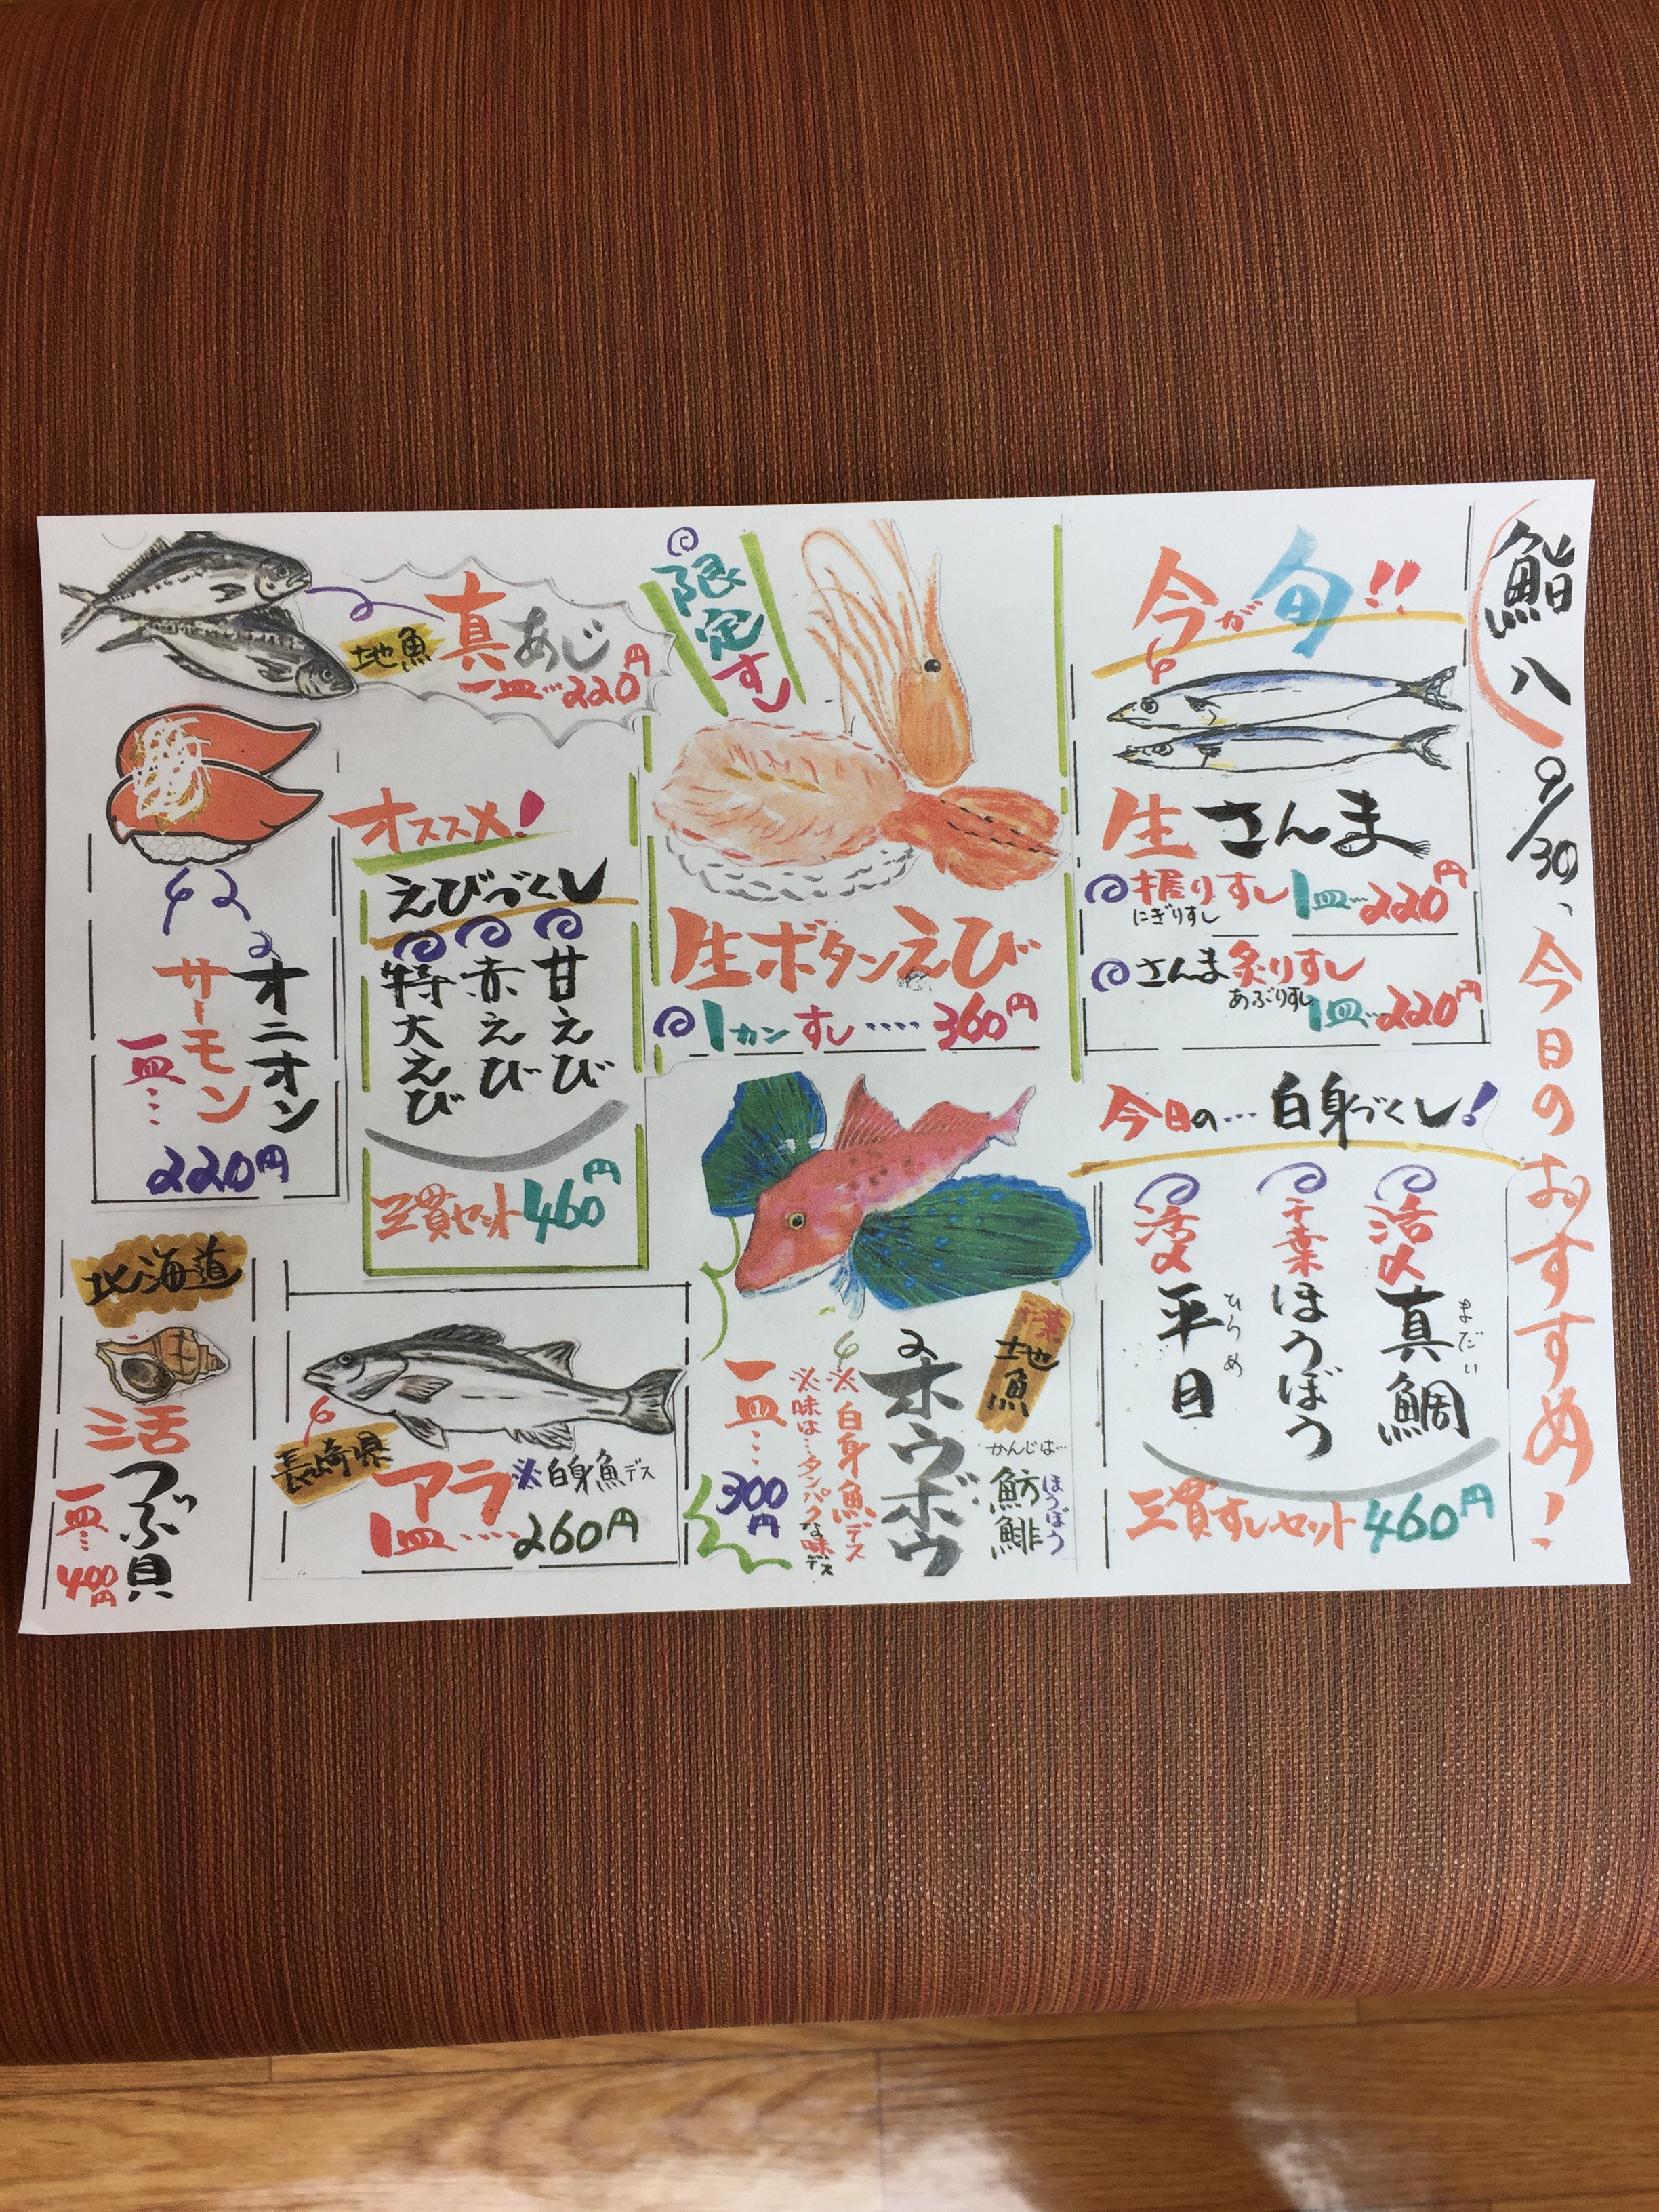 鮨八 9/30、今日のおすすめ!
今が旬!!
生さんま
握りすし 1皿…220円
にぎりすし
さんま炙りすし
あぶりすし
1皿…220円
今日の…白身づくし!
活〆真鯛
まだい
千葉ほうぼう
活〆平目
ひらめ
三貫すしセット460円
限定すし
生ボタンえび
1カンすし‥‥360円
千葉
地魚
かんじは…
魴鮄
ほうぼう
ホウボウ
※白身魚デス
※味は…タンパクな味デス
一皿…300円
地魚
真あじ
一皿…220円
オススメ!
えびづくし
甘えび
赤えび
特大えび
三貫セット460円
オニオン
サーモン
一皿…
220円
長崎県
アラ
※白身魚デス
1皿‥‥260円
北海道
活つぶ貝
一皿…400円